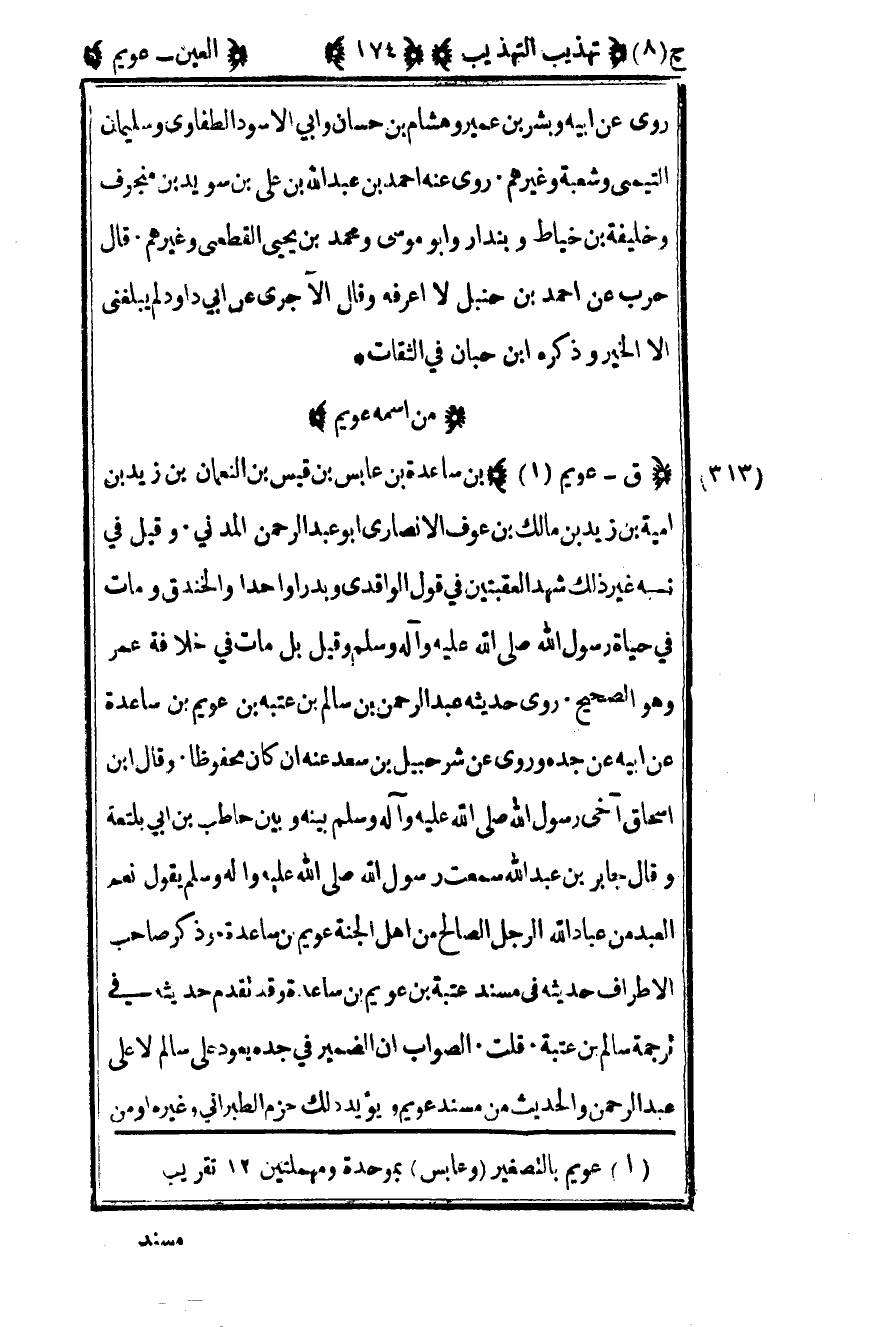 ج (٨) ﴿ تهذيب التهذيب ﴾ ﴿ ١٧٤ ﴾ ﴿ العين ـ عويم ﴾
روى عن ابيه وبشر بن عمير وهشام بن حسان وابي الاسود الطفاوى وسليمان
التيمى وشعبة وغيرهم ٠ روى عنه احمد بن عبدالله بن على بن سويد بن منجوف
وخليفة بن خياط و بندار وابو موسى ومحمد بن يحيى القطعى وغيرهم ٠ قال
حرب عن احمد بن حنبل لا اعرفه وقال الآجرى عن ابي داود لم يبلغنى
الا الخير و ذكره ابن حبان في الثقات •
﴿ من اسمه عويم ﴾
(٣١٣) ﴿ ق ـ عويم (١) ﴾ بن ساعدة بن عابس بن قيس بن النعمان بن زيد بن
امية بن زيد بن مالك بن عوف الانصارى ابو عبد الرحمن المدني ٠ و قيل في
نسبه غير ذلك شهد العقبتين في قول الواقدى و بدرا واحدا والخندق و مات
في حياة رسول الله صلى الله عليه وآله وسلم وقيل بل مات في خلافة عمر
وهو الصحيح ٠ روى حديثه عبدالرحمن بن سالم بن عتبه بن عويم بن ساعدة
عن ابيه عن جده وروى عن شرحبيل بن سعد عنه ان كان محفوظا ٠ وقال ابن
اسحاق آخى رسول الله صلى الله عليه وآله وسلم بينه و بين حاطب بن ابي بلتعة
و قال جابر بن عبد الله سمعت رسول الله صلى الله عليه واله وسلم يقول نعم
العبد من عباد الله الرجل الصالح من اهل الجنة عويم بن ساعدة ٠ وذكر صاحب
الاطراف حديثه فى مسند عتبة بن عويم بن ساعدة وقد تقدم حديثه في
ترجمة سالم بن عتبة ٠ قلت ٠ الصواب ان الضمير في جده يعود على سالم لا على
عبد الرحمن والحديث من مسند عويم و يؤيد ذلك حزم الطبراني وغيره او من
(١) عويم بالتصغير (وعابس) بموحدة ومهملتين ١٢ تقريب
مسند